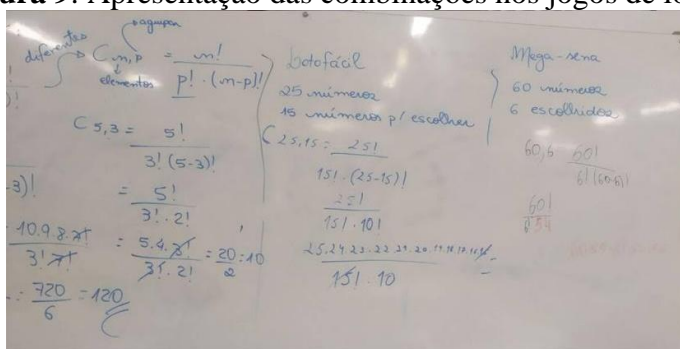 ura 9: Apresentação das combinações nos jogos de lo
diferentes
agrupa
C n,p = n! / p! . (n-p)!
elementos
C 5,3 = 5! / 3! (5-3)!
= 5! / 3! . 2!
= 5.4.3! / 3! . 2! = 20 / 2 = 10
-3)!
10.9.8.7! / 3! 7!
720 / 6 = 120
Lotofácil
25 números
15 números p/ escolher
C 25,15 = 25! / 15! . (25-15)!
25! / 15! . 10!
25.24.23.22.21.20.19.18.17.16.15! / 15! . 10
Mega-sena
60 números
6 escolhidos
60,6 60! / 6! (60-6)!
60! / 6! 54